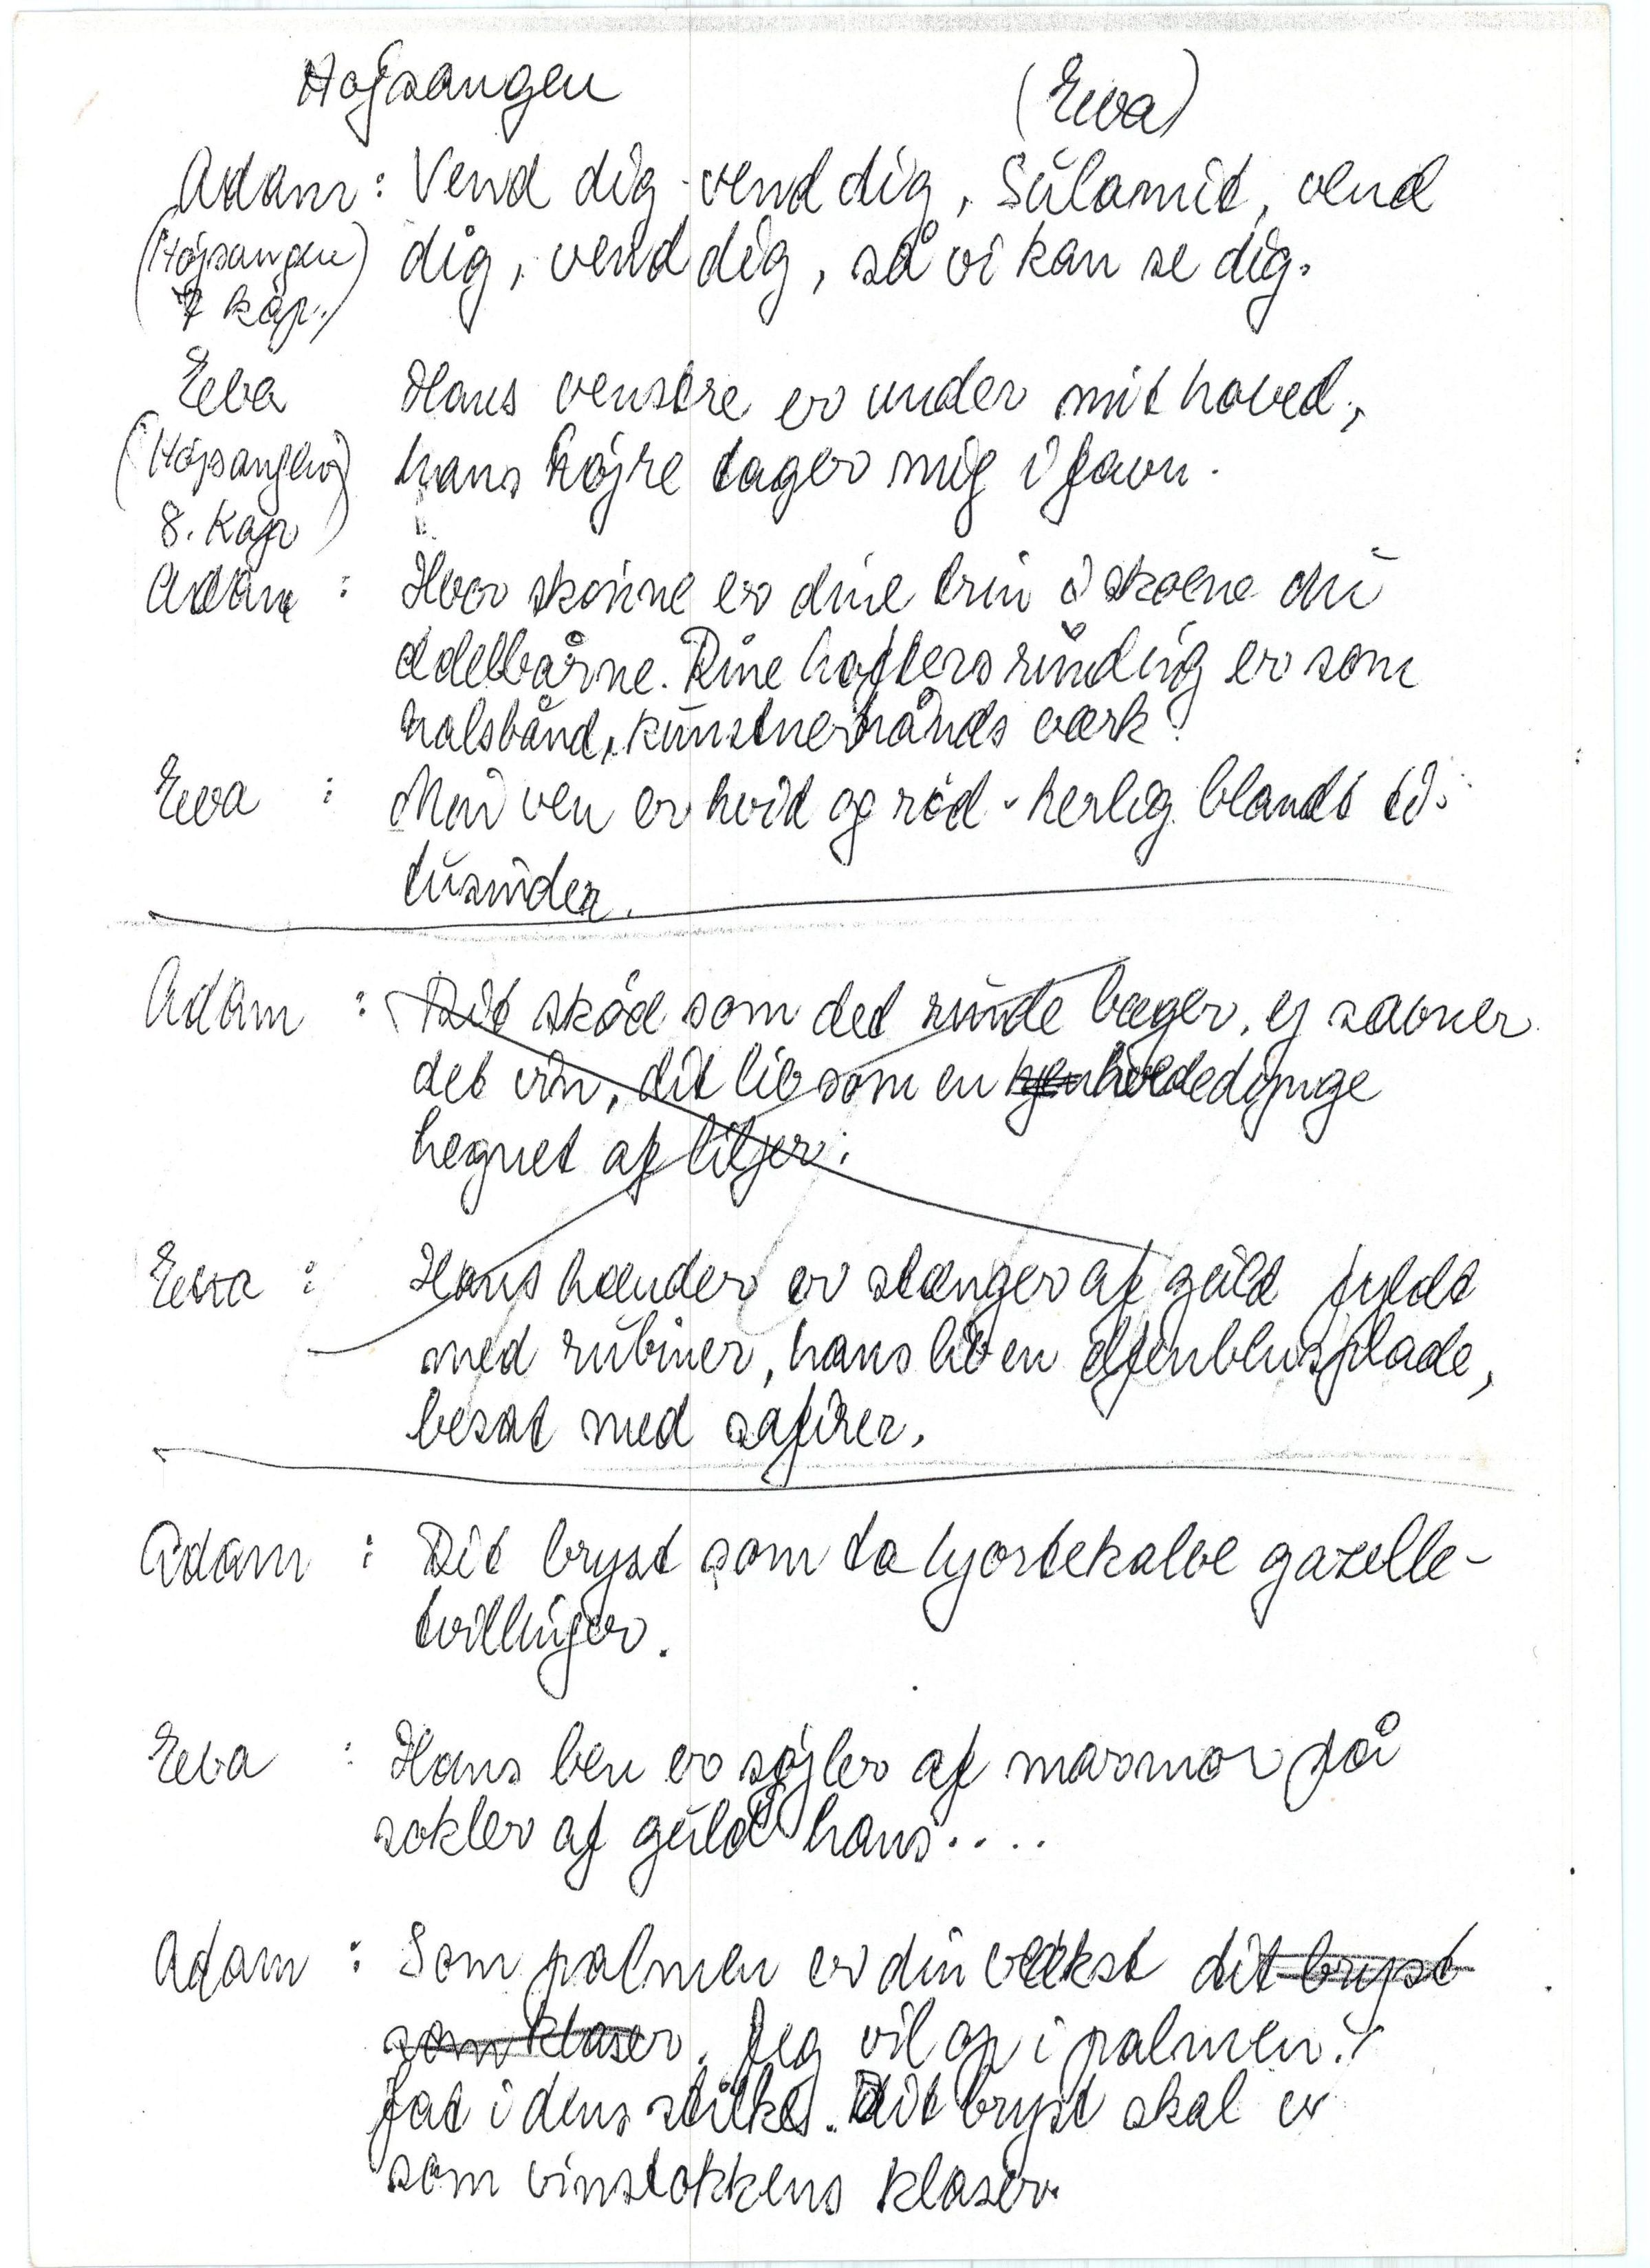 Højsangen (Eva)
Adam: Vend dig - vend dig, Sulamit, vend
(Højsangen dig, vend dig, så vi kan se dig.
7 kap.)
Eva Hans venstre er under mit hoved,
(Højsangen hans højre tager mig i favn.
8. Kap)
Adam : Hvor skønne er dine trin i skoene du
ædelbårne. Dine hofters runding er som
halsbånd, kunstnerhånds værk.
Eva : Min ven er hvid og rød - herlig blandt ti-
tusinder.
Adam : Dit skød som det runde bæger, ej savner
det vin, dit liv som en hvededynge
hegnet af liljer.
Eva : Hans hænder er stænger af guld fyldt
med rubiner, hans liv en elfenbensplade,
besat med safirer.
Adam : Dit bryst som to hjortekalve gazelle-
tvillinger.
Eva : Hans ben er søjler af marmor på
sokler af guld hans....
Adam : Som palmen er din vækst dit bryst
som klaser. Jeg vil op i palmen.
fat i dens stilke. Dit bryst skal er
som vinstokkens klaser.